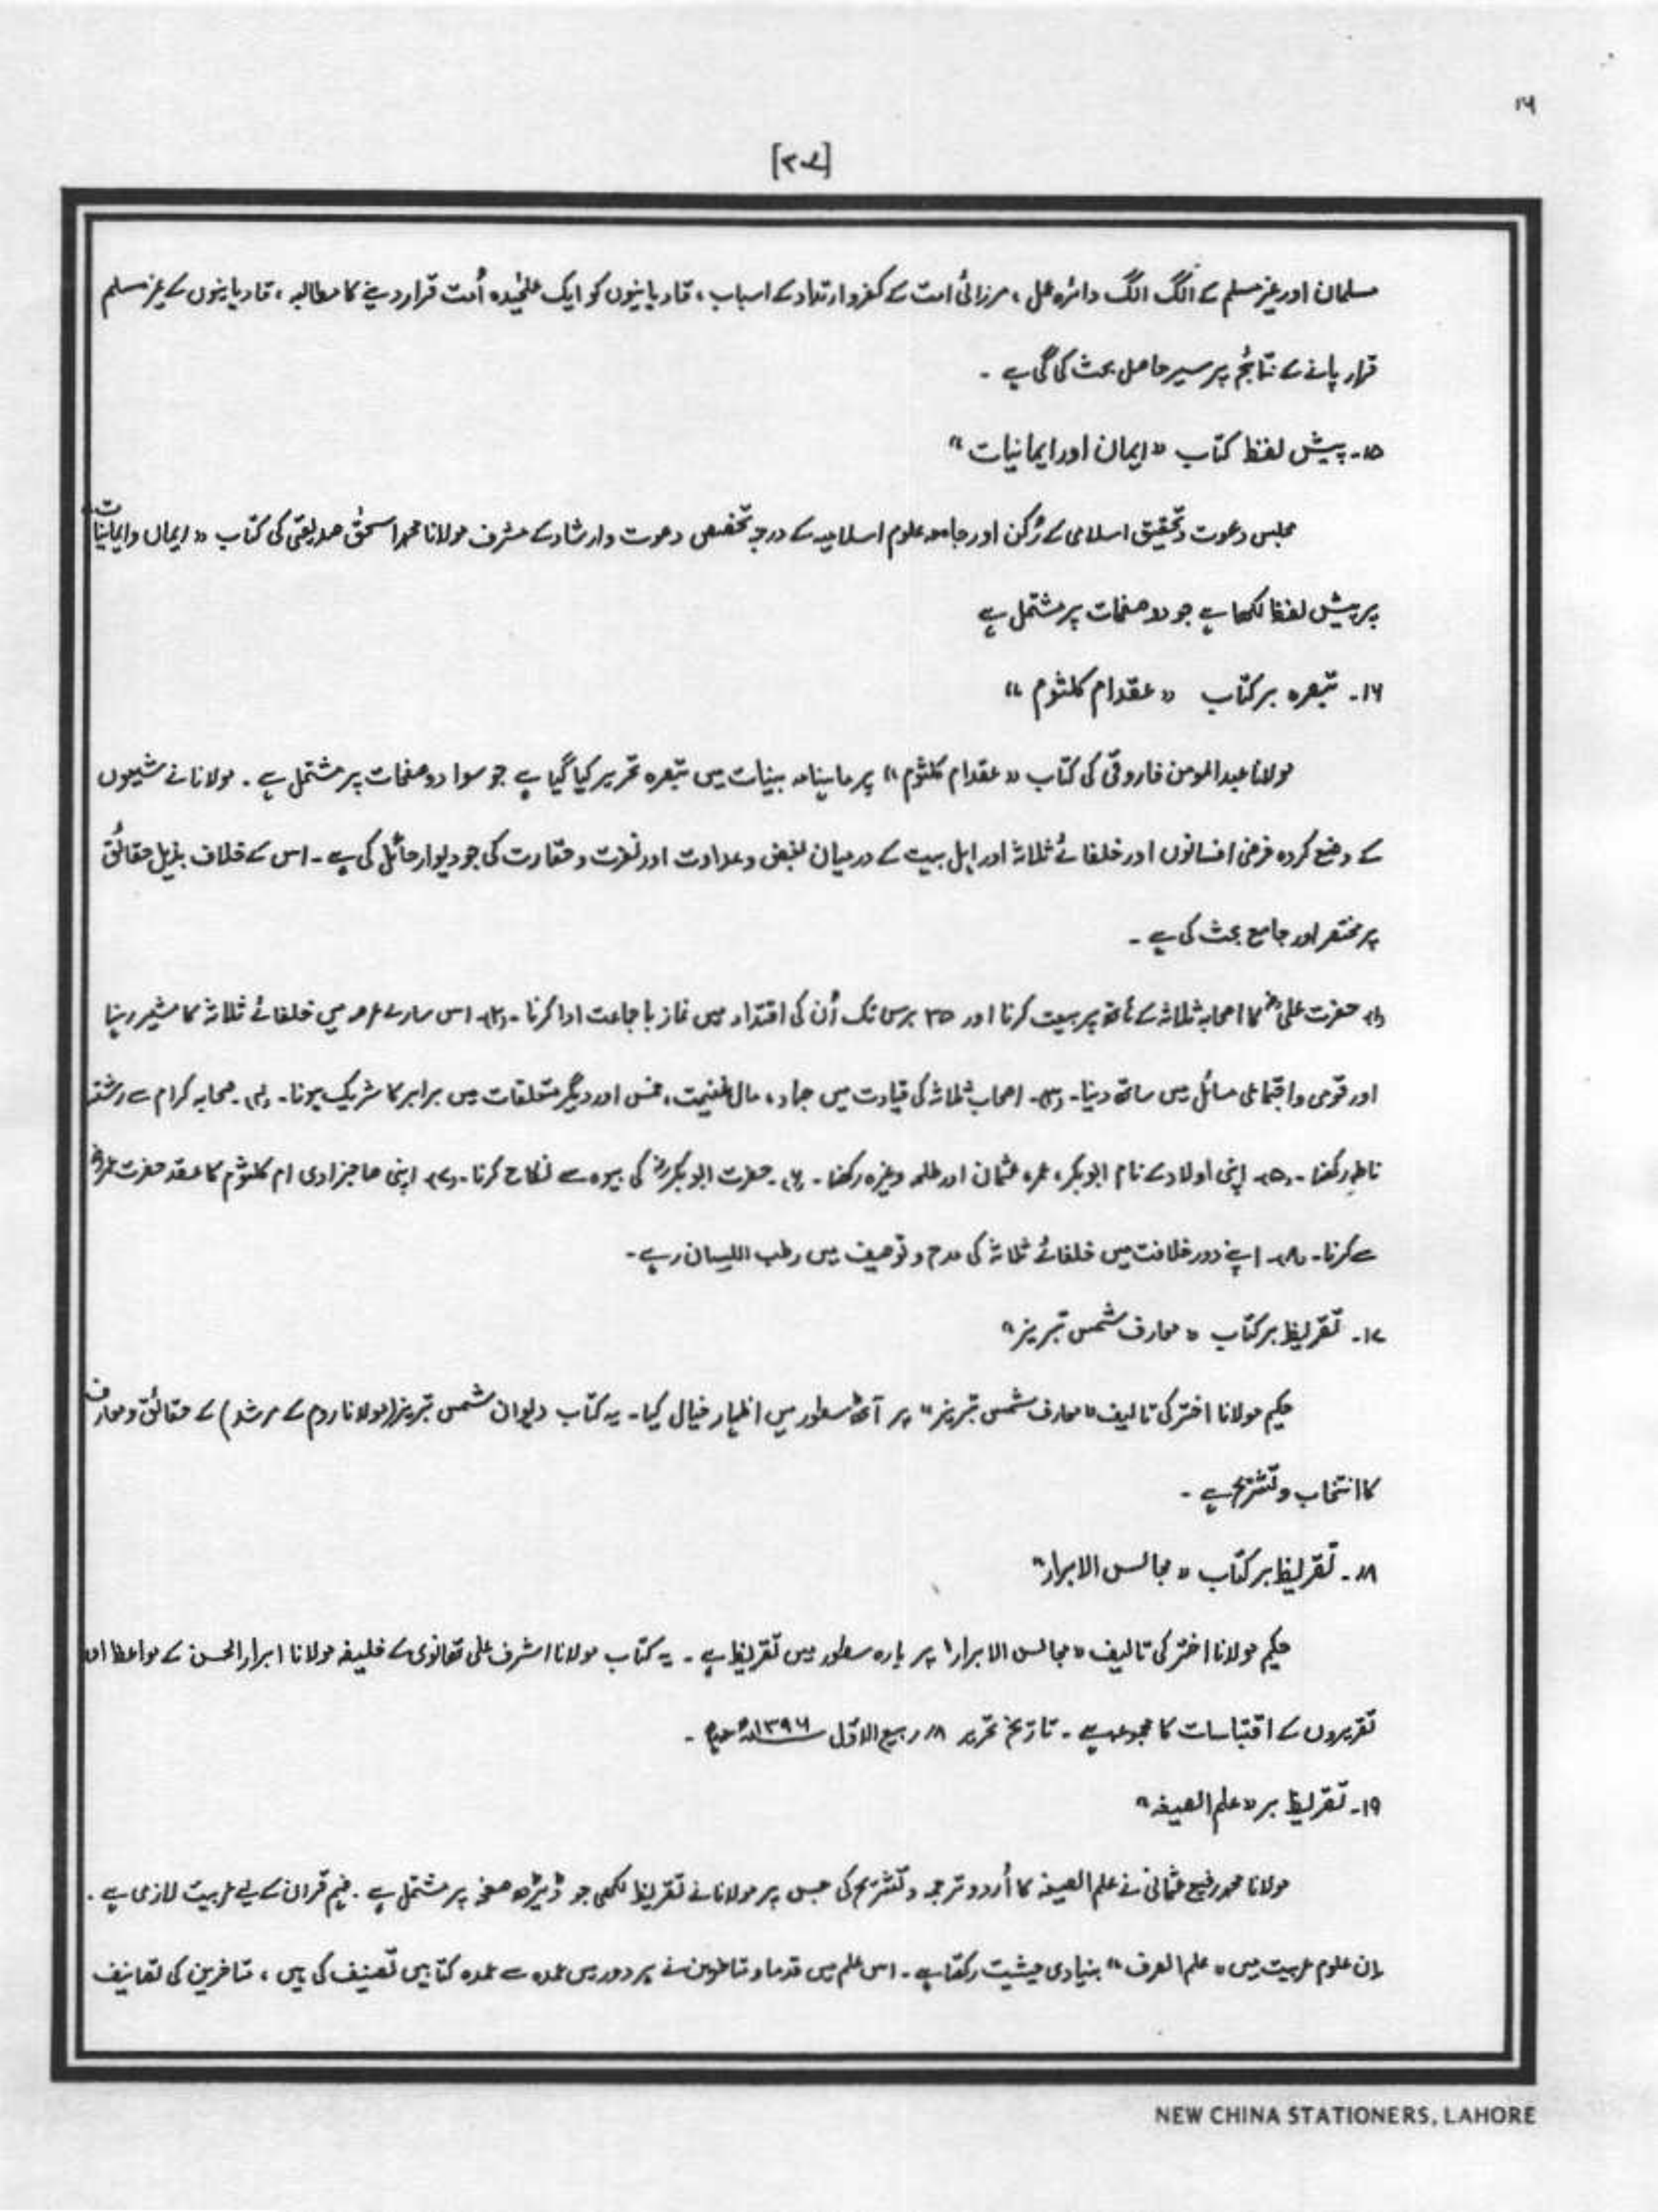 ۱۶
[۲۰۷]
مسلمان اور غیر مسلم کے الگ الگ دائرہ عمل ، مرزائی امت کے کفر و ارتداد کے اسباب ، قادیانیوں کو ایک علیٰحدہ اُمت قرار دینے کا مطالبہ ، قادیانیوں کے غیر مسلم
قرار پانے کے نتائج پر سیر حاصل بحث کی گی ہے ۔
۱۵۔ پیش لفظ کتاب "ایمان اور ایمانیات"
مجلس دعوت و تحقیق اسلامی کے رُکن اور جامعہ علوم اسلامیہ کے درجہ تخصص دعوت و ارشاد کے مشرف مولانا محمد اسحٰق صدیقی کی کتاب "ایمان و ایمانیات"
پر پیش لفظ لکھا ہے جو صفحات پر مشتمل ہے
۱۶۔ تبصرہ بر کتاب "عقد ام کلثوم"
مولانا عبدالمومن فاروقی کی کتاب "عقد ام کلثوم" پر ماہنامہ بینات میں تبصرہ تحریر کیا گیا ہے جو سوا دو صفحات پر مشتمل ہے ۔ مولانا نے شیعوں
کے وضع کردہ فرضی افسانوں اور خلفائے ثلاثہ اور اہل بیت کے درمیان بغض و عداوت اور نفرت و حقارت کی جو دیوار حائل کی ہے ۔ اس کے خلاف بذیل حقائق
پر مختصر اور جامع بحث کی ہے ۔
(۱) حضرت علیؓ کا اصحاب ثلاثہ کے ہاتھ پر بیعت کرنا اور ۲۵ برس تک اُن کی اقتداء میں نماز با جماعت ادا کرنا ۔ (۲)۔ اس سارے عرصہ میں خلفائے ثلاثہ کا مشیر رہنا
اور قومی و اجتماعی مسائل میں ساتھ دینا ۔ (۳)۔ اصحاب ثلاثہ کی قیادت میں جہاد ، مال غنیمت ، خمس اور دیگر متعلقات میں برابر کا شریک ہونا ۔ (۴)۔ صحابہ کرام سے رشتہ
ناطہ رکھنا ۔ (۵)۔ اپنی اولاد کے نام ابوبکر ، عمر ، عثمان اور طلحہ وغیرہ رکھنا ۔ (۶)۔ حضرت ابوبکرؓ کی بیوہ سے نکاح کرنا ۔ (۷)۔ اپنی صاحبزادی ام کلثوم کا عقد حضرت عمرؓ
سے کرنا ۔ (۸)۔ اپنے دور خلافت میں خلفائے ثلاثہ کی مدح و توصیف میں رطب اللیسان رہے ۔
۱۷۔ تقریظ بر کتاب "معارف شمس تبریز"
حکیم مولانا اختر کی تالیف "معارف شمس تبریز" پر آٹھ سطور میں اظہار خیال کیا ۔ یہ کتاب دیوان شمس تبریز (مولانا روم کے مرشد) کے حقائق و معارف
کا انتخاب و تشریح ہے ۔
۱۸۔ تقریظ بر کتاب "مجالس الابرار"
حکیم مولانا اختر کی تالیف "مجالس الابرار" پر بارہ سطور میں تقریظ ہے ۔ یہ کتاب مولانا اشرف علی تھانوی کے خلیفہ مولانا ابرارالحسن کے مواعظ اور
تقریروں کے اقتباسات کا مجموعہ ہے ۔ تاریخ تحریر ۱۸؍ ربیع الاوّل ۱۳۹۶ھ ہے ۔
۱۹۔ تقریظ بر "علم الصیغہ"
مولانا محمد رفیع عثمانی نے علم الصیغہ کا اُردو ترجمہ و تشریح کی جس پر مولانا نے تقریظ لکھی جو ڈیڑھ صفحہ پر مشتمل ہے ۔ فہم قرآن کے لیے عربیت لازمی ہے ۔
ان علوم عربیت میں "علم الصرف" بنیادی حیثیت رکھتا ہے ۔ اس علم میں قدما و متاخرین نے ہر دور میں عمدہ سے عمدہ کتابیں تصنیف کی ہیں ، متاخرین کی تصانیف
NEW CHINA STATIONERS, LAHORE